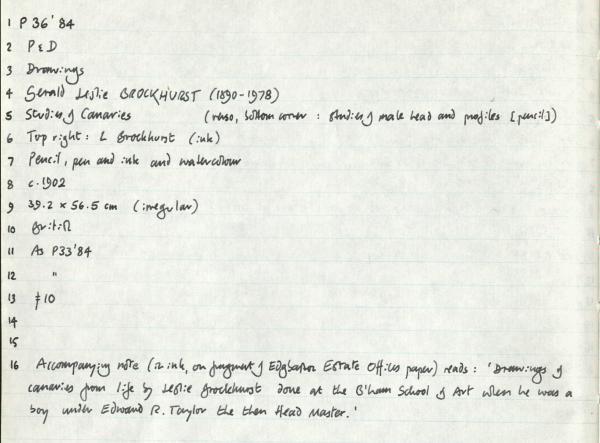 1 P 36'84
2 P & D
3 Drawings
4 Gerald Leslie BROCKHURST (1890-1978)
5 Studies of Canaries (verso, bottom corner : studies of male head and profiles [pencil])
6 Top right : L Brockhurst (ink)
7 Pencil, pen and ink and watercolour
8 c.1902
9 39.2 x 56.5 cm (irregular)
10 British
11 As P33'84
12 "
13 ‡10
14
15
16 Accompanying note (in ink, on fragment of Edgbaston Estate Offices paper) reads : 'Drawings of
canaries from life by Leslie Brockhurst done at the B'ham School of Art when he was a
boy under Edward R. Taylor the then Head Master.'